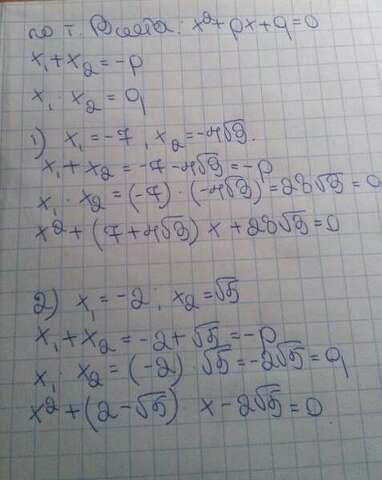 по т. Виета: x²+px+q=0
x₁+x₂=-p
x₁·x₂=q
1) x₁=-7, x₂=-4√3.
x₁+x₂=-7-4√3=-p
x₁·x₂=(-7)·(-4√3)=28√3=q
x²+(7+4√3)x+28√3=0
2) x₁=-2; x₂=√5
x₁+x₂=-2+√5=-p
x₁·x₂=(-2)·√5=-2√5=q
x²+(2-√5)x-2√5=0